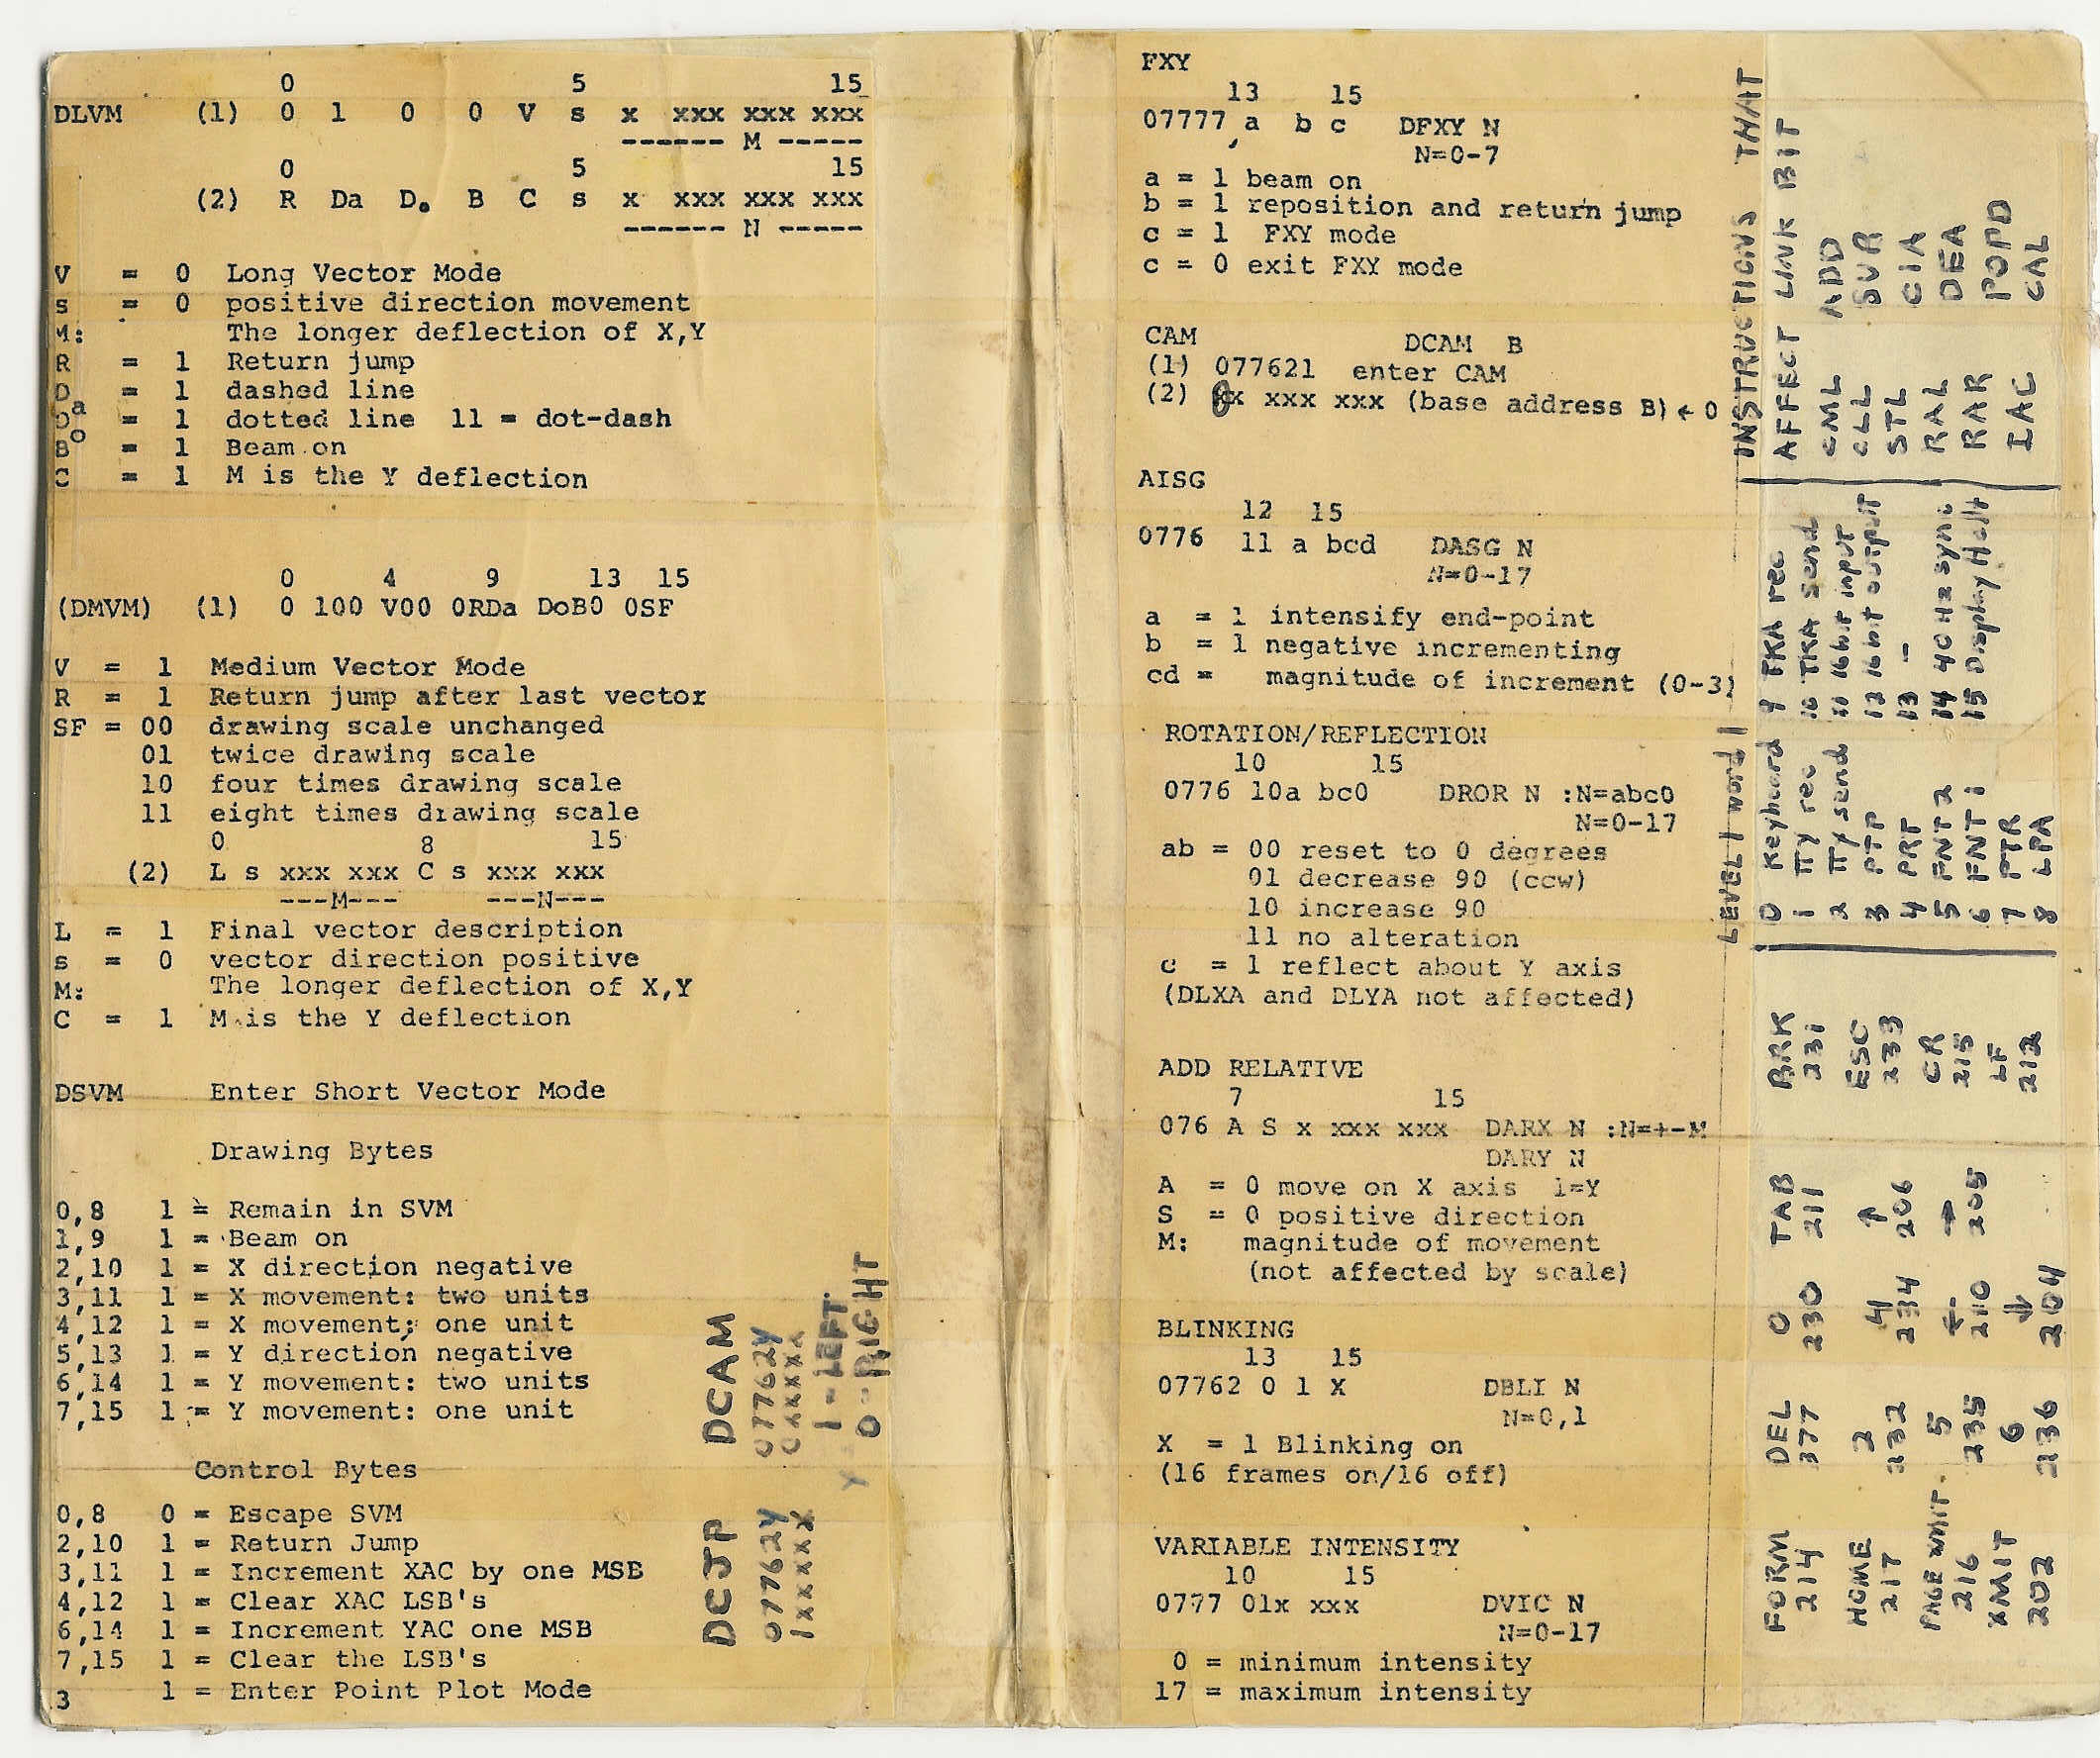 0 5 15
DLVM (1) 0 1 0 0 V s x xxx xxx xxx
------ M -----
0 5 15
(2) R Da D. B C s x xxx xxx xxx
------ N -----
V = 0 Long Vector Mode
s = 0 positive direction movement
M: The longer deflection of X,Y
R = 1 Return jump
Da = 1 dashed line
Do = 1 dotted line 11 = dot-dash
B = 1 Beam on
C = 1 M is the Y deflection
0 4 9 13 15
(DMVM) (1) 0 100 V00 0RDa DoB0 0SF
V = 1 Medium Vector Mode
R = 1 Return jump after last vector
SF = 00 drawing scale unchanged
01 twice drawing scale
10 four times drawing scale
11 eight times drawing scale
0 8 15
(2) L s xxx xxx C s xxx xxx
---M--- ---N---
L = 1 Final vector description
s = 0 vector direction positive
M: The longer deflection of X,Y
C = 1 M is the Y deflection
DSVM Enter Short Vector Mode
Drawing Bytes
0,8 1 = Remain in SVM
1,9 1 = Beam on
2,10 1 = X direction negative
3,11 1 = X movement: two units
4,12 1 = X movement: one unit
5,13 1 = Y direction negative
6,14 1 = Y movement: two units
7,15 1 = Y movement: one unit
Control Bytes
0,8 0 = Escape SVM
2,10 1 = Return Jump
3,11 1 = Increment XAC by one MSB
4,12 1 = Clear XAC LSB's
6,14 1 = Increment YAC one MSB
7,15 1 = Clear the LSB's
3 1 = Enter Point Plot Mode
DCJP DCAM
07762Y 07762Y
1xxxxx 0xxxxx
Y 1-LEFT
0-RIGHT
FXY
13 15
07777 a b c DFXY N
N=0-7
a = 1 beam on
b = 1 reposition and return jump
c = 1 FXY mode
c = 0 exit FXY mode
CAM DCAM B
(1) 077621 enter CAM
(2) 0x xxx xxx (base address B) ← 0
AISG
12 15
0776 11 a bcd DASG N
N=0-17
a = 1 intensify end-point
b = 1 negative incrementing
cd = magnitude of increment (0-3)
ROTATION/REFLECTION
10 15
0776 10a bc0 DROR N :N=abc0
N=0-17
ab = 00 reset to 0 degrees
01 decrease 90 (ccw)
10 increase 90
11 no alteration
c = 1 reflect about Y axis
(DLXA and DLYA not affected)
ADD RELATIVE
7 15
076 A S x xxx xxx DARX N :N=+-M
DARY N
A = 0 move on X axis 1=Y
S = 0 positive direction
M: magnitude of movement
(not affected by scale)
BLINKING
13 15
07762 0 1 X DBLI N
N=0,1
X = 1 Blinking on
(16 frames on/16 off)
VARIABLE INTENSITY
10 15
0777 01x xxx DVIC N
N=0-17
0 = minimum intensity
17 = maximum intensity
INSTRUCTIONS THAT
AFFECT LINK BIT
CML ADD
CLL SUR
STL CIA
RAL DEA
RAR POPD
IAC CAL
LEVEL 1 word 1
0 Keyboard 9 TKA rec
1 TTy rec 10 TKA send
2 TTy send 11 16bit input
3 PTP 12 16 bit output
4 PRT 13 -
5 FNT 2 14 40 Hz sync
6 FNT 1 15 Display Halt
7 PTR
8 LPA
FORM DEL 0 TAB BRK
214 377 230 211 231
HOME 2 4 ↑ ESC
217 232 234 206 233
PAGE WMIT. 5 ← → CR
216 235 210 205 215
XMIT 6 ↓ LF
202 236 204 212